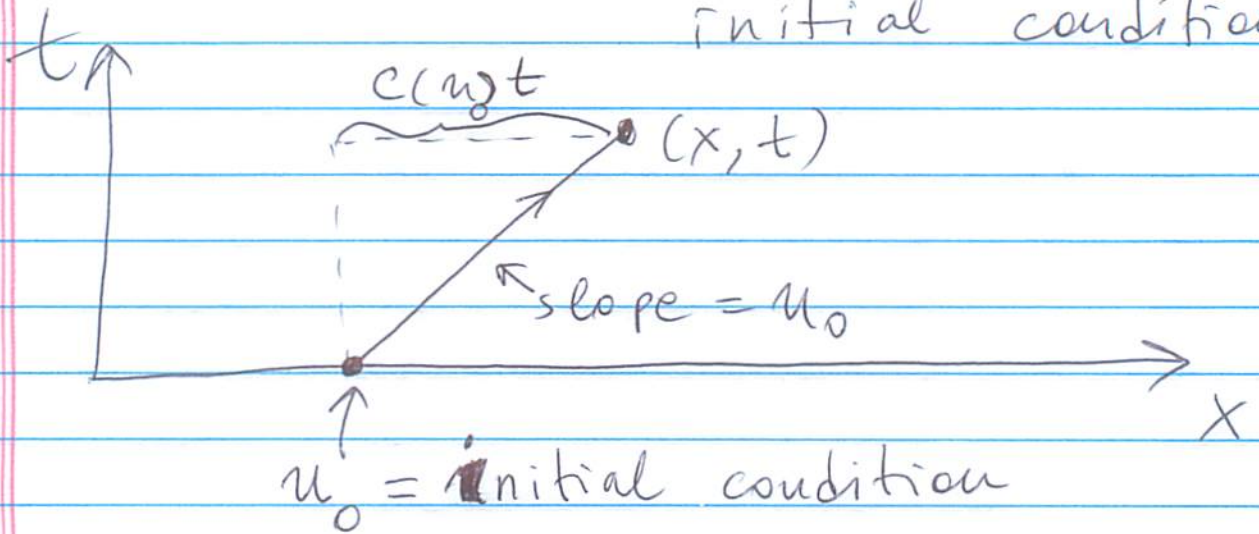 initial conditio
t
c(u₀)t
(x, t)
slope = u₀
x
u₀ = initial condition